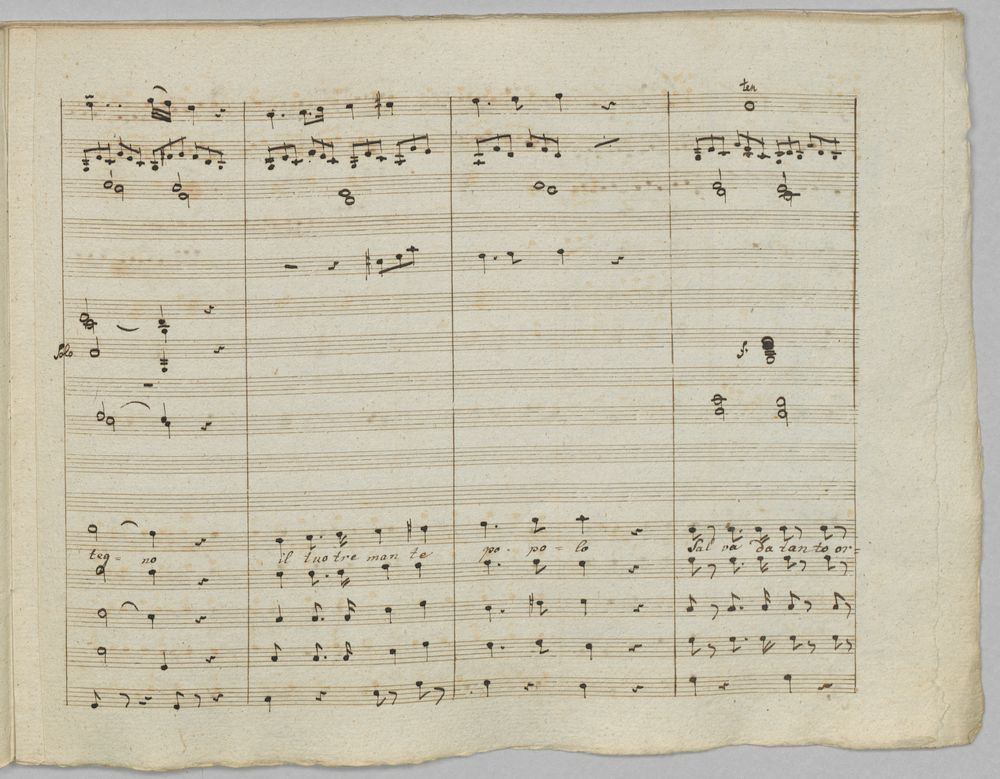 ten
Solo
f.
teg = no il tuo tre man te po. po = lo Sal va da tan to or=